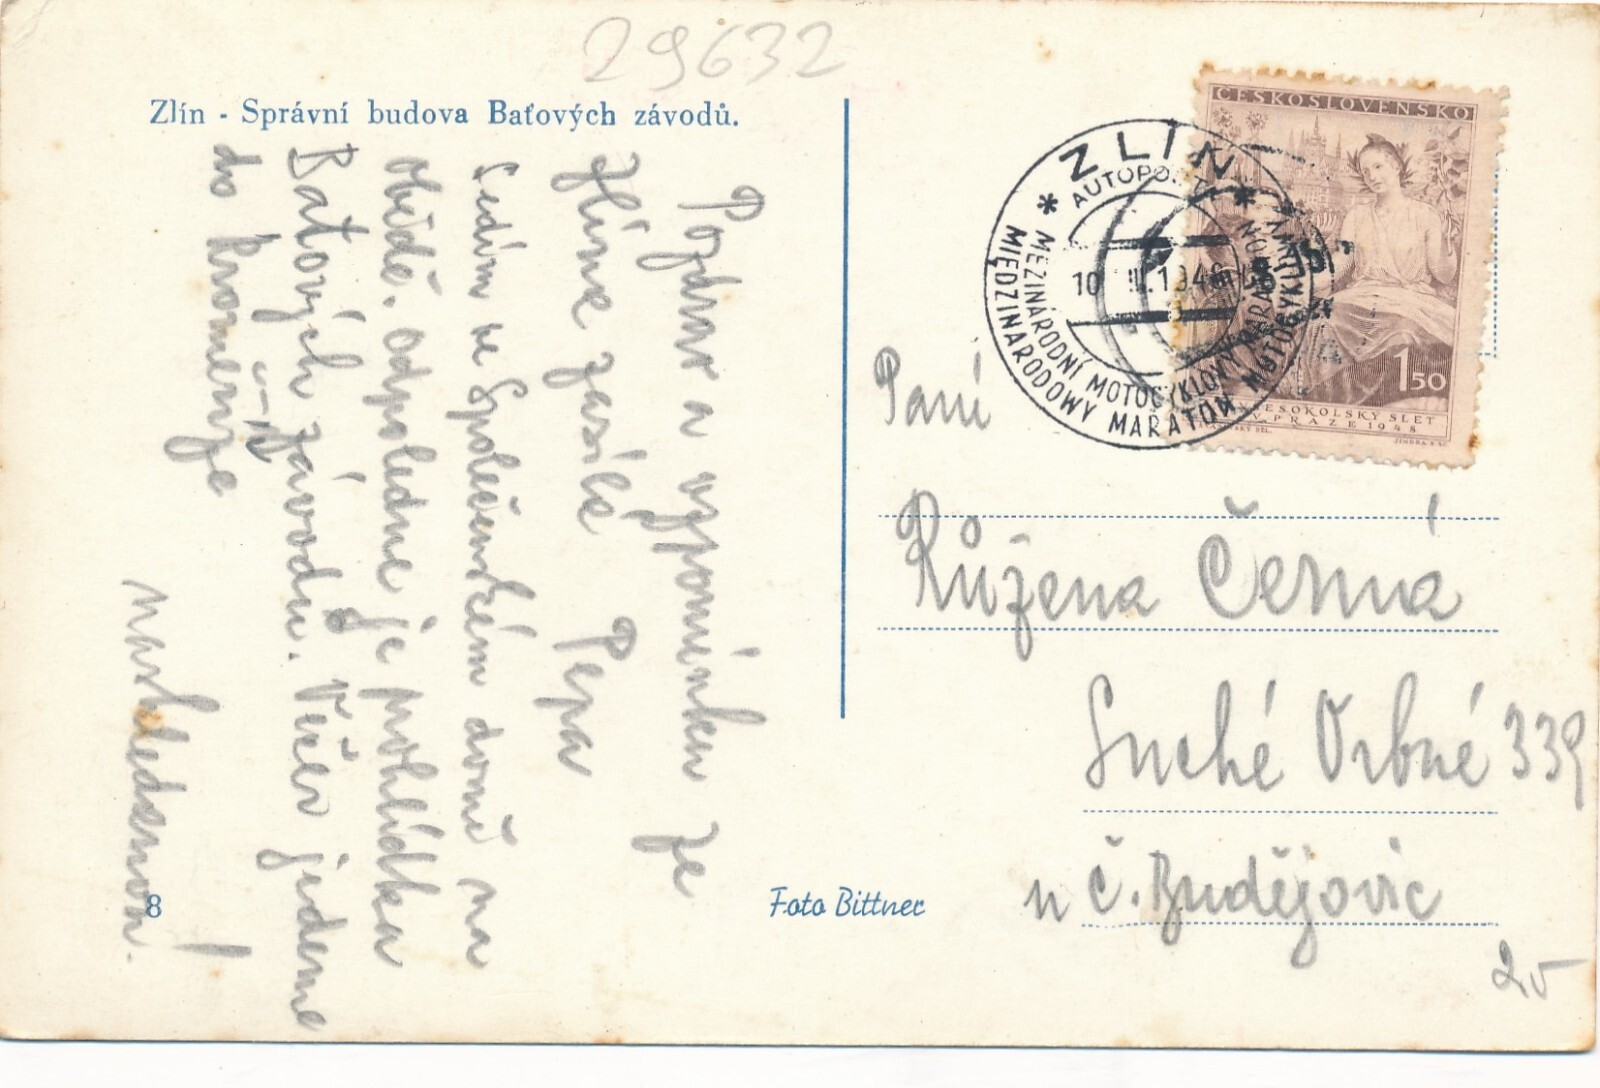 29632
Zlín - Správní budova Baťových závodů.
Pozdrav a vzpomínku ze
Zlína zasílá Pepa
Sedím ve Společenském domě na
obědě. odpoledne je prohlídka
Baťových závodů. Večer jedeme
do Kroměříže
Nashledanou!
8
Foto Bittner
ČESKOSLOVENSKO
1 50
VŠESOKOLSKÝ SLET
V PRAZE 1948
ZLÍN
AUTOPOŠTA
MEZINÁRODNÍ MOTOCYKLOVÝ MARATON
MIĘDZINARODOWY MARATON MOTOCYKLOWY
Paní
Růžena Černá
Suché Vrbné 339
u Č. Budějovic
25